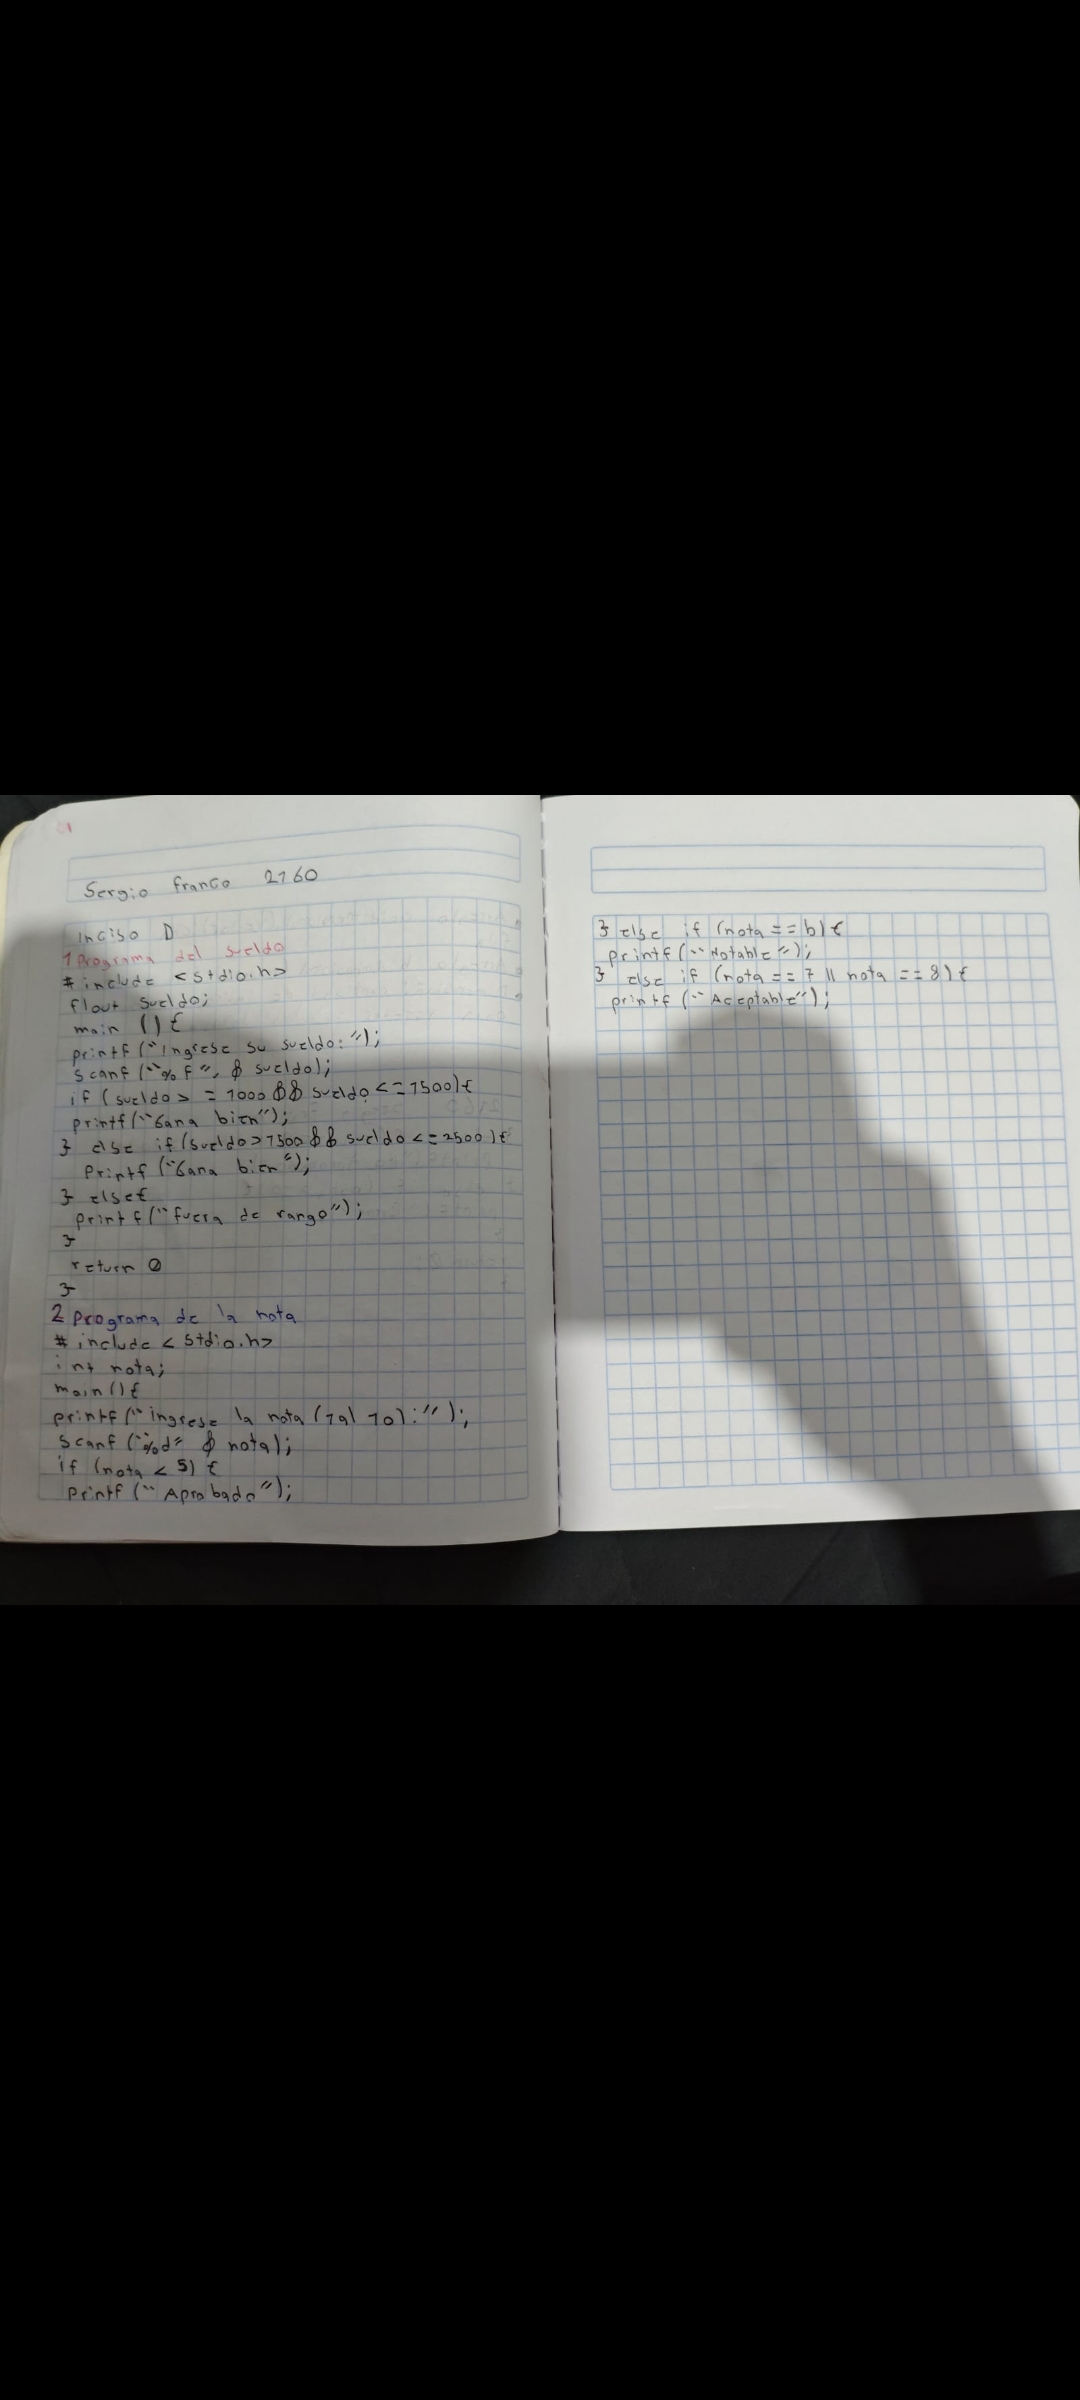 Sergio Franco 2160
Inciso D
1 Programa del sueldo
# include <stdio.h>
flout sueldo;
main () {
printf ("Ingrese su sueldo: ");
scanf ("%f", & sueldo);
if (sueldo > = 1000 && sueldo <= 1500) {
printf ("Gana bien");
} else if (sueldo > 1500 && sueldo <= 2500) {
Printf ("Gana bien");
} else {
printf ("fuera de rango");
}
return 0
}
2 Programa de la nota
# include < stdio.h>
int nota;
main () {
printf ("ingrese la nota (1al 10): ");
Scanf ("%d" & nota);
if (nota < 5) {
Printf (" Aprobado");
} else if (nota == 6) {
printf (" Notable ");
} else if (nota == 7 || nota == 8) {
printf (" Aceptable");